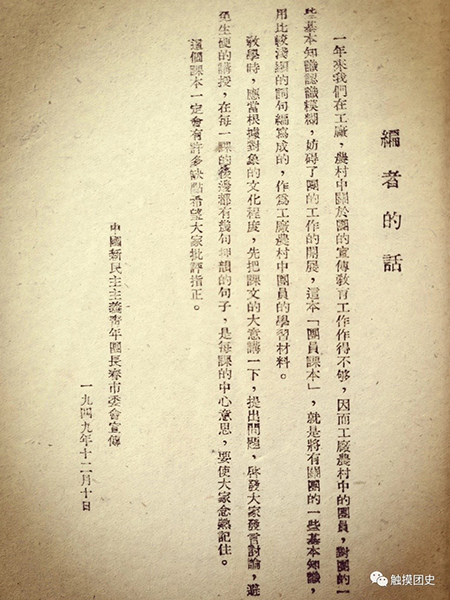 編者的話
一年來我們在工廠，農村中關於團的宣傳敎育工作作得不够，因而工廠農村中的團員，對團的一
些基本知識認識模糊，妨碍了團的工作的開展，這本「團員課本」，就是將有關團的一些基本知識，
用比較淺顯的詞句編寫成的，作爲工廠農村中團員的學習材料。
敎學時，應當根據對象的文化程度，先把課文的大意講一下，提出問題，啓發大家發言討論，避
免生硬的講授，在每一課的後邊都有幾句押韻的句子，是每課的中心意思，要使大家念熟記住。
這個課本一定會有許多缺點希望大家批評指正。
中國新民主主義靑年團長春市委會宣傳
一九四九年十二月十日
触摸团史